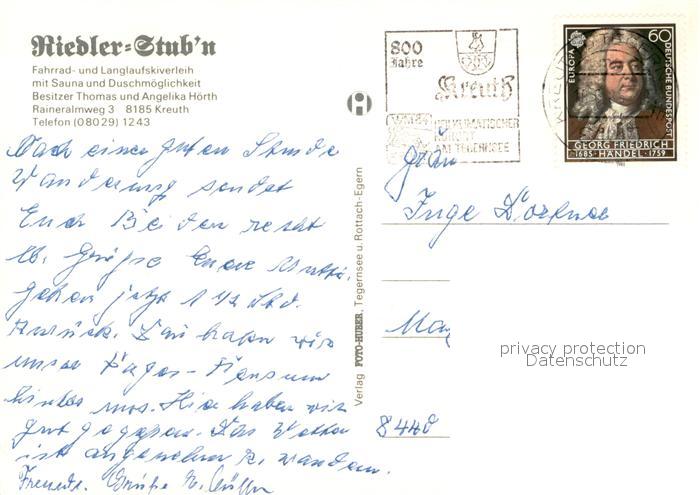 Riedler=Stub'n
Fahrrad- und Langlaufskiverleih
mit Sauna und Duschmöglichkeit
Besitzer Thomas und Angelika Hörth
Raineralmweg 3 8185 Kreuth
Telefon (08029) 1243
Nach einer guten Stunde
Wanderung sendet
Euch Beiden recht
lb. Grüße Eure Mutti.
gehen jetzt 1 1/2 Std.
zurück. Dann haben wir
unser Tages-Pensum
hinter uns. Hier haben wir
gut gegessen. Das Wetter
ist angenehm z. wandern.
Freundl. Grüße
Verlag FOTO-HUBER, Tegernsee u. Rottach-Egern
800
Jahre
Kreuth
HEILKLIMATISCHER
KURORT
AM TEGERNSEE
KREUTH
EUROPA
60
DEUTSCHE BUNDESPOST
GEORG FRIEDRICH
·1685·HÄNDEL·1759
Inge
8440
privacy protection
Datenschutz